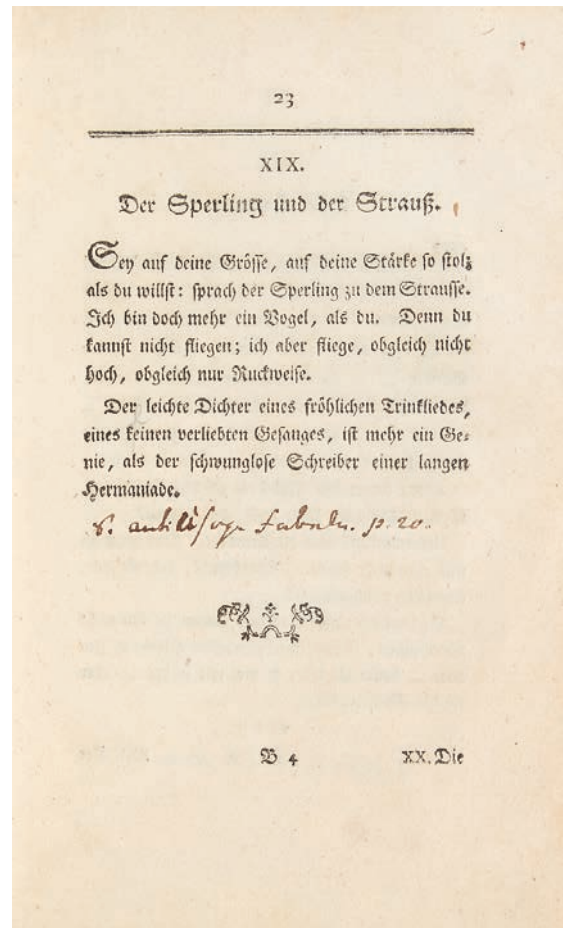 23
XIX.
Der Sperling und der Strauß.
Sey auf deine Grösse, auf deine Stärke so stolz
als du willst: sprach der Sperling zu dem Strausse.
Ich bin doch mehr ein Vogel, als du. Denn du
kannst nicht fliegen; ich aber fliege, obgleich nicht
hoch, obgleich nur Ruckweise.
Der leichte Dichter eines fröhlichen Trinkliedes,
eines keinen verliebten Gesanges, ist mehr ein Ge-
nie, als der schwunglose Schreiber einer langen
Hermaniade.
p. 20.
B 4
XX. Die